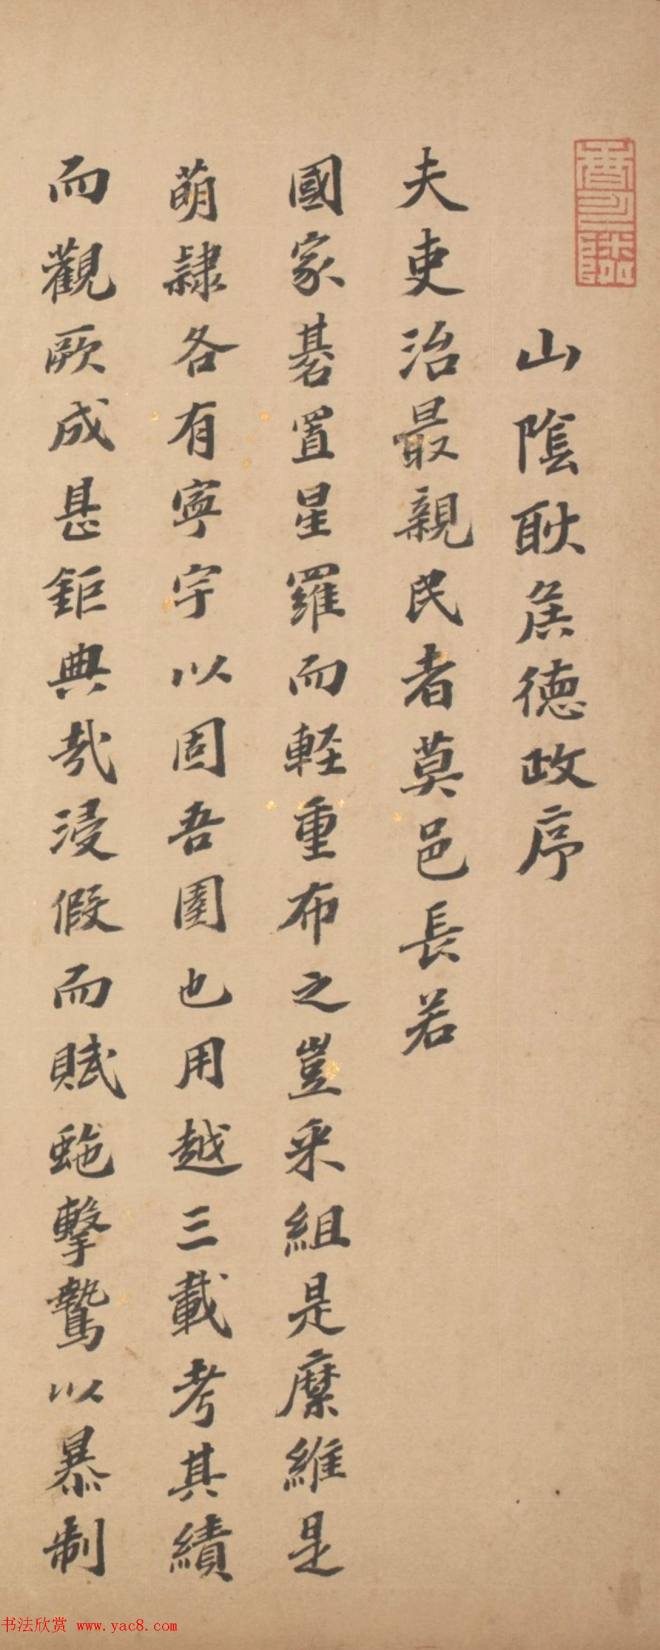 山陰耿侯德政序
夫吏治最親民者莫邑長若
國家碁置星羅而軽重布之豈采組是縻維是
萌隷各有寧宇以固吾圉也用越三載考其績
而觀厥成甚鉅典哉浸假而賦虵擊鷙以暴制
书法欣赏 www.yac8.com